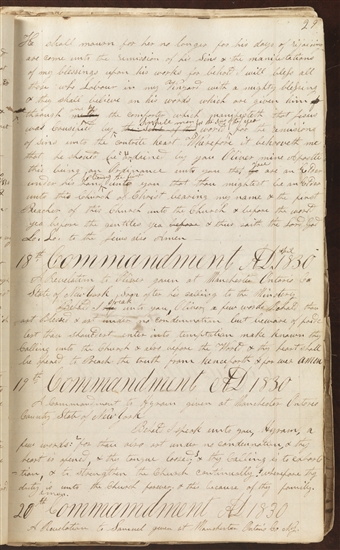 29
He shall mourn for her no longer for his days of rejoicing
are come unto the remission of his Sins & the manifestations
of my blessings upon his works for behold I will bless all
those who Labour in my vineyard with a mighty blessing
& they shall believe on his words which are given him
through the comforter which manifesteth that Jesus
was crucified by Sinful men for the Sins of the world
for the remission
of Sins unto the contrite heart Wherefore it behooveth me
that he should be by you Oliver mine apostle
this being an ordinance unto you that you are an Elder
under his hand he being the first unto you that thou mightest be an Elder
unto this Church of Christ bearing my name & the first
Preacher of this Church unto the Church & before the world
yea before the gentiles yea & thus saith the Lord God
Lo, Lo, to the Jews also Amen
18th Commandment AD 1830
A Revelation to Oliver given at Manchester Ontario Co
State of New York Soon after his calling to the ministry
Behold I speak unto you, Oliver, a few words, Behold thou
art blessed & art under no condemnation, but beware of pride
lest thou shouldest enter into temptation make known thy
Calling unto the Church & also before the World & thy heart shall
be opened to Preach the truth from henceforth & forever amen
19th Commandment AD 1830
A Commandment to Hyrum given at Manchester Ontario
County State of New York
Behold I speak unto you Hyrum, a
few words for thou also art under no condemnation & thy
heart is opened, & thy tongue loosed & thy Calling is to exhorta
-tion, & to Strengthen the Church continually, Wherefore thy
duty is unto the Church forever & this because of thy family,
amen
20th Commandment AD 1830
A Revelation to Samuel given at Manchester Ontario Co NY